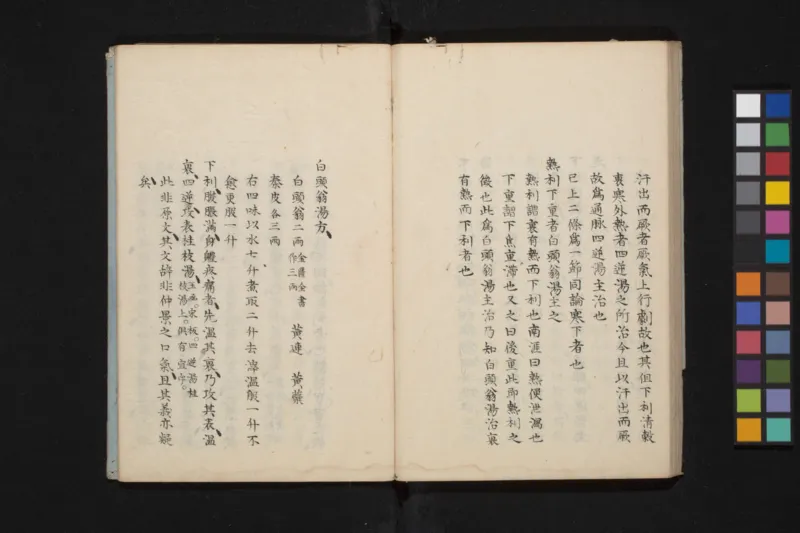 汗出而厥者厥氣上行劇故也其但下利清穀
裏寒外熱者四逆湯之所治今且以汗出而厥
故爲通脉四逆湯主治也
已上二條爲一節同論寒下者也
熱利下重者白頭翁湯主之
熱利謂裏有熱而下利也南涯曰熱便泄瀉也
下重謂下焦重滯也又之曰後重此即熱利之
後也此爲白頭翁湯主治乃知白頭翁湯治裏
有熱而下利者也
白頭翁湯方
白頭翁二兩金匱全書作三兩 黃連 黃蘗
秦皮各三兩
右四味以水七升煮取二升去滓溫服一升不
愈更服一升
下利腹脹滿身體疼痛者先溫其裏乃攻其表溫
裏四逆攻表桂枝湯玉函宋板四逆湯桂枝湯上俱有宜字
此非原文其文辭非仲景之口氣且其義亦疑
矣